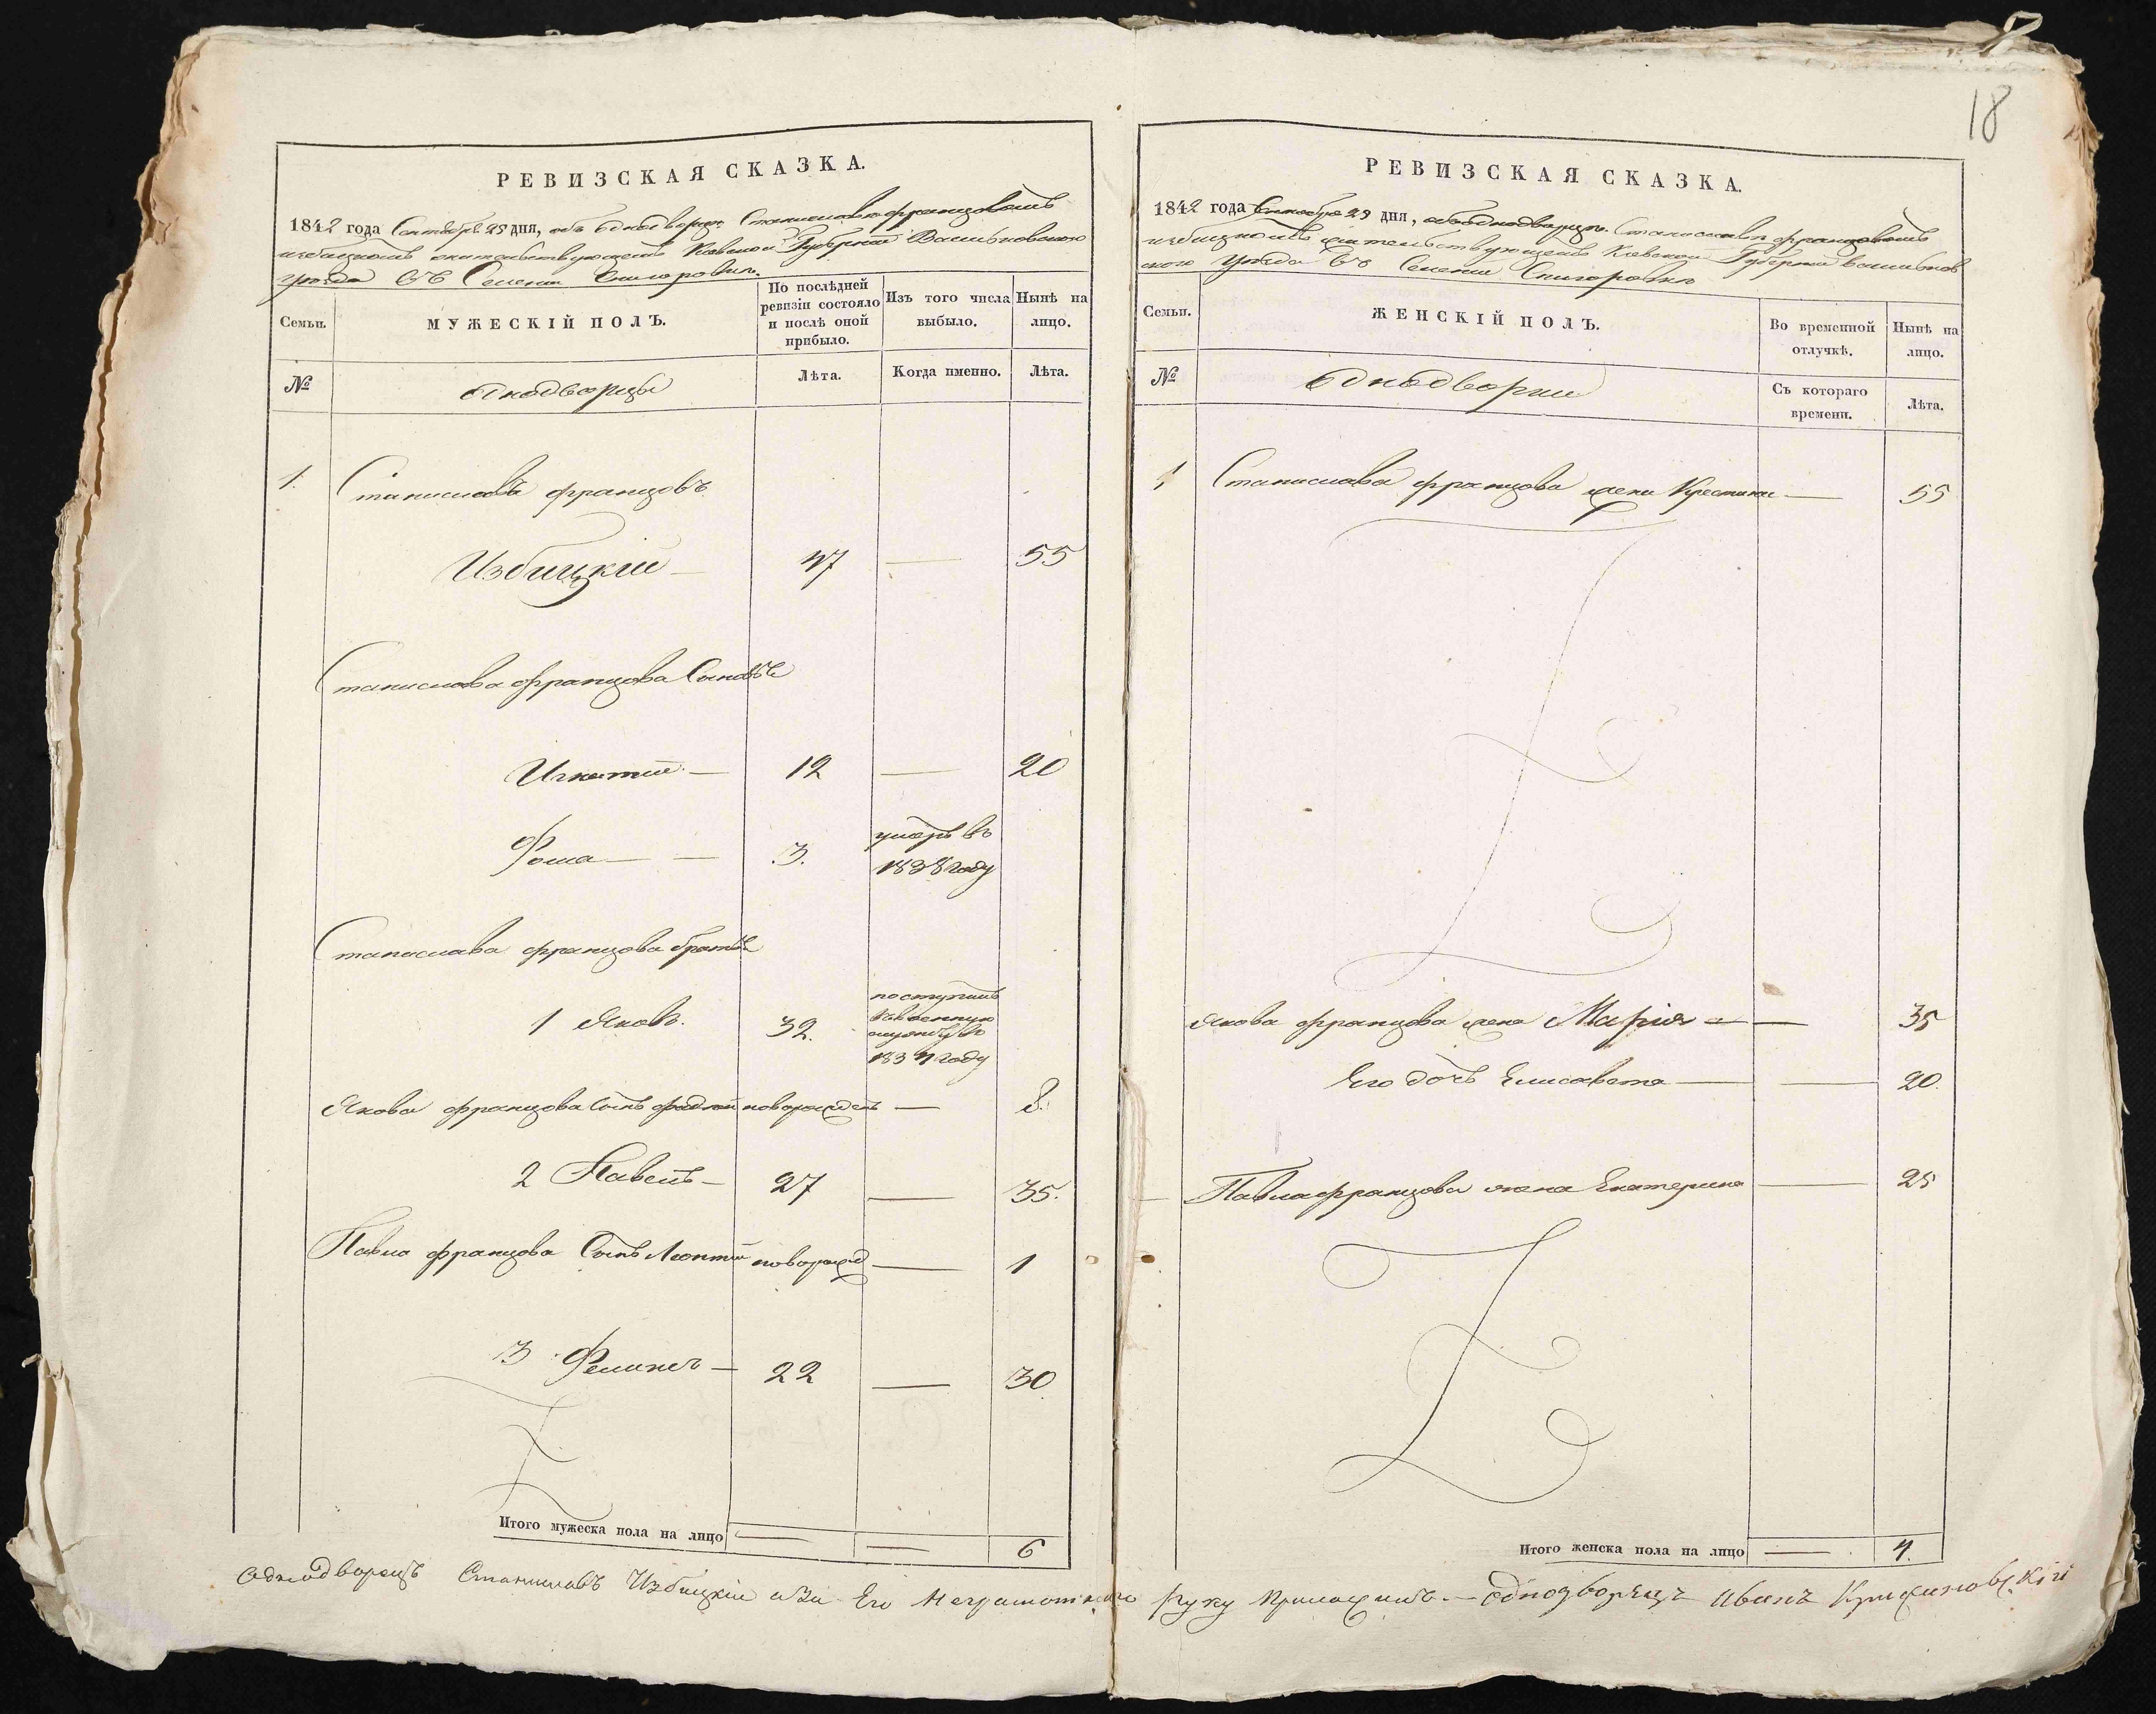 18
РЕВИЗСКАЯ СКАЗКА.
1842 года Сентября 29 дня, объ Однодворце Станиславе Францовомъ
Избицкомъ жительствующемъ Киевской Губернии Васильковского
уезда въ Селении
Семьи.
МУЖЕСКІЙ ПОЛЪ.
По послѣдней ревизіи состояло и послѣ оной прибыло.
Изъ того числа выбыло.
Нынѣ на лицо.
№
Однодворцы
Лѣта.
Когда именно.
Лѣта.
1. Станиславъ Францовъ
Избицкій — 47 — 55
Станислава Францова Сыновья
Игнатий — 12 — 20
Фома — — 3. умеръ въ
1838 году
Станислава Францова братья
1 Яковъ. 32. поступилъ
въ военную
службу въ
1834 году
Якова Францова Сынъ новорожденъ — 8.
2 Павелъ — 27 — 35.
Павла Францова Сынъ Леонтий новорожд — 1
3 Феликсъ — 22 — 30
Итого мужеска пола на лицо — — 6
РЕВИЗСКАЯ СКАЗКА.
1842 года Сентября 29 дня, объ Однодворце Станиславе Францовомъ
Избицкомъ жительствующемъ Киевской Губернии Васильков
ского уезда Въ Селении
Семьи.
ЖЕНСКІЙ ПОЛЪ.
Во временной отлучкѣ.
Нынѣ на лицо.
№
Однодворки
Съ котораго времени.
Лѣта.
1 Станислава Францова жена Крестина — 55
Якова Францова жена Марія — — 35
Его дочь Елисавета — — 20.
Павла Францова жена Екатерина — 25
Итого женска пола на лицо — 4.
Однодворецъ Станиславъ Избицкій а За Его Неграмотного руку Приложилъ. — Однодворецъ Иванъ